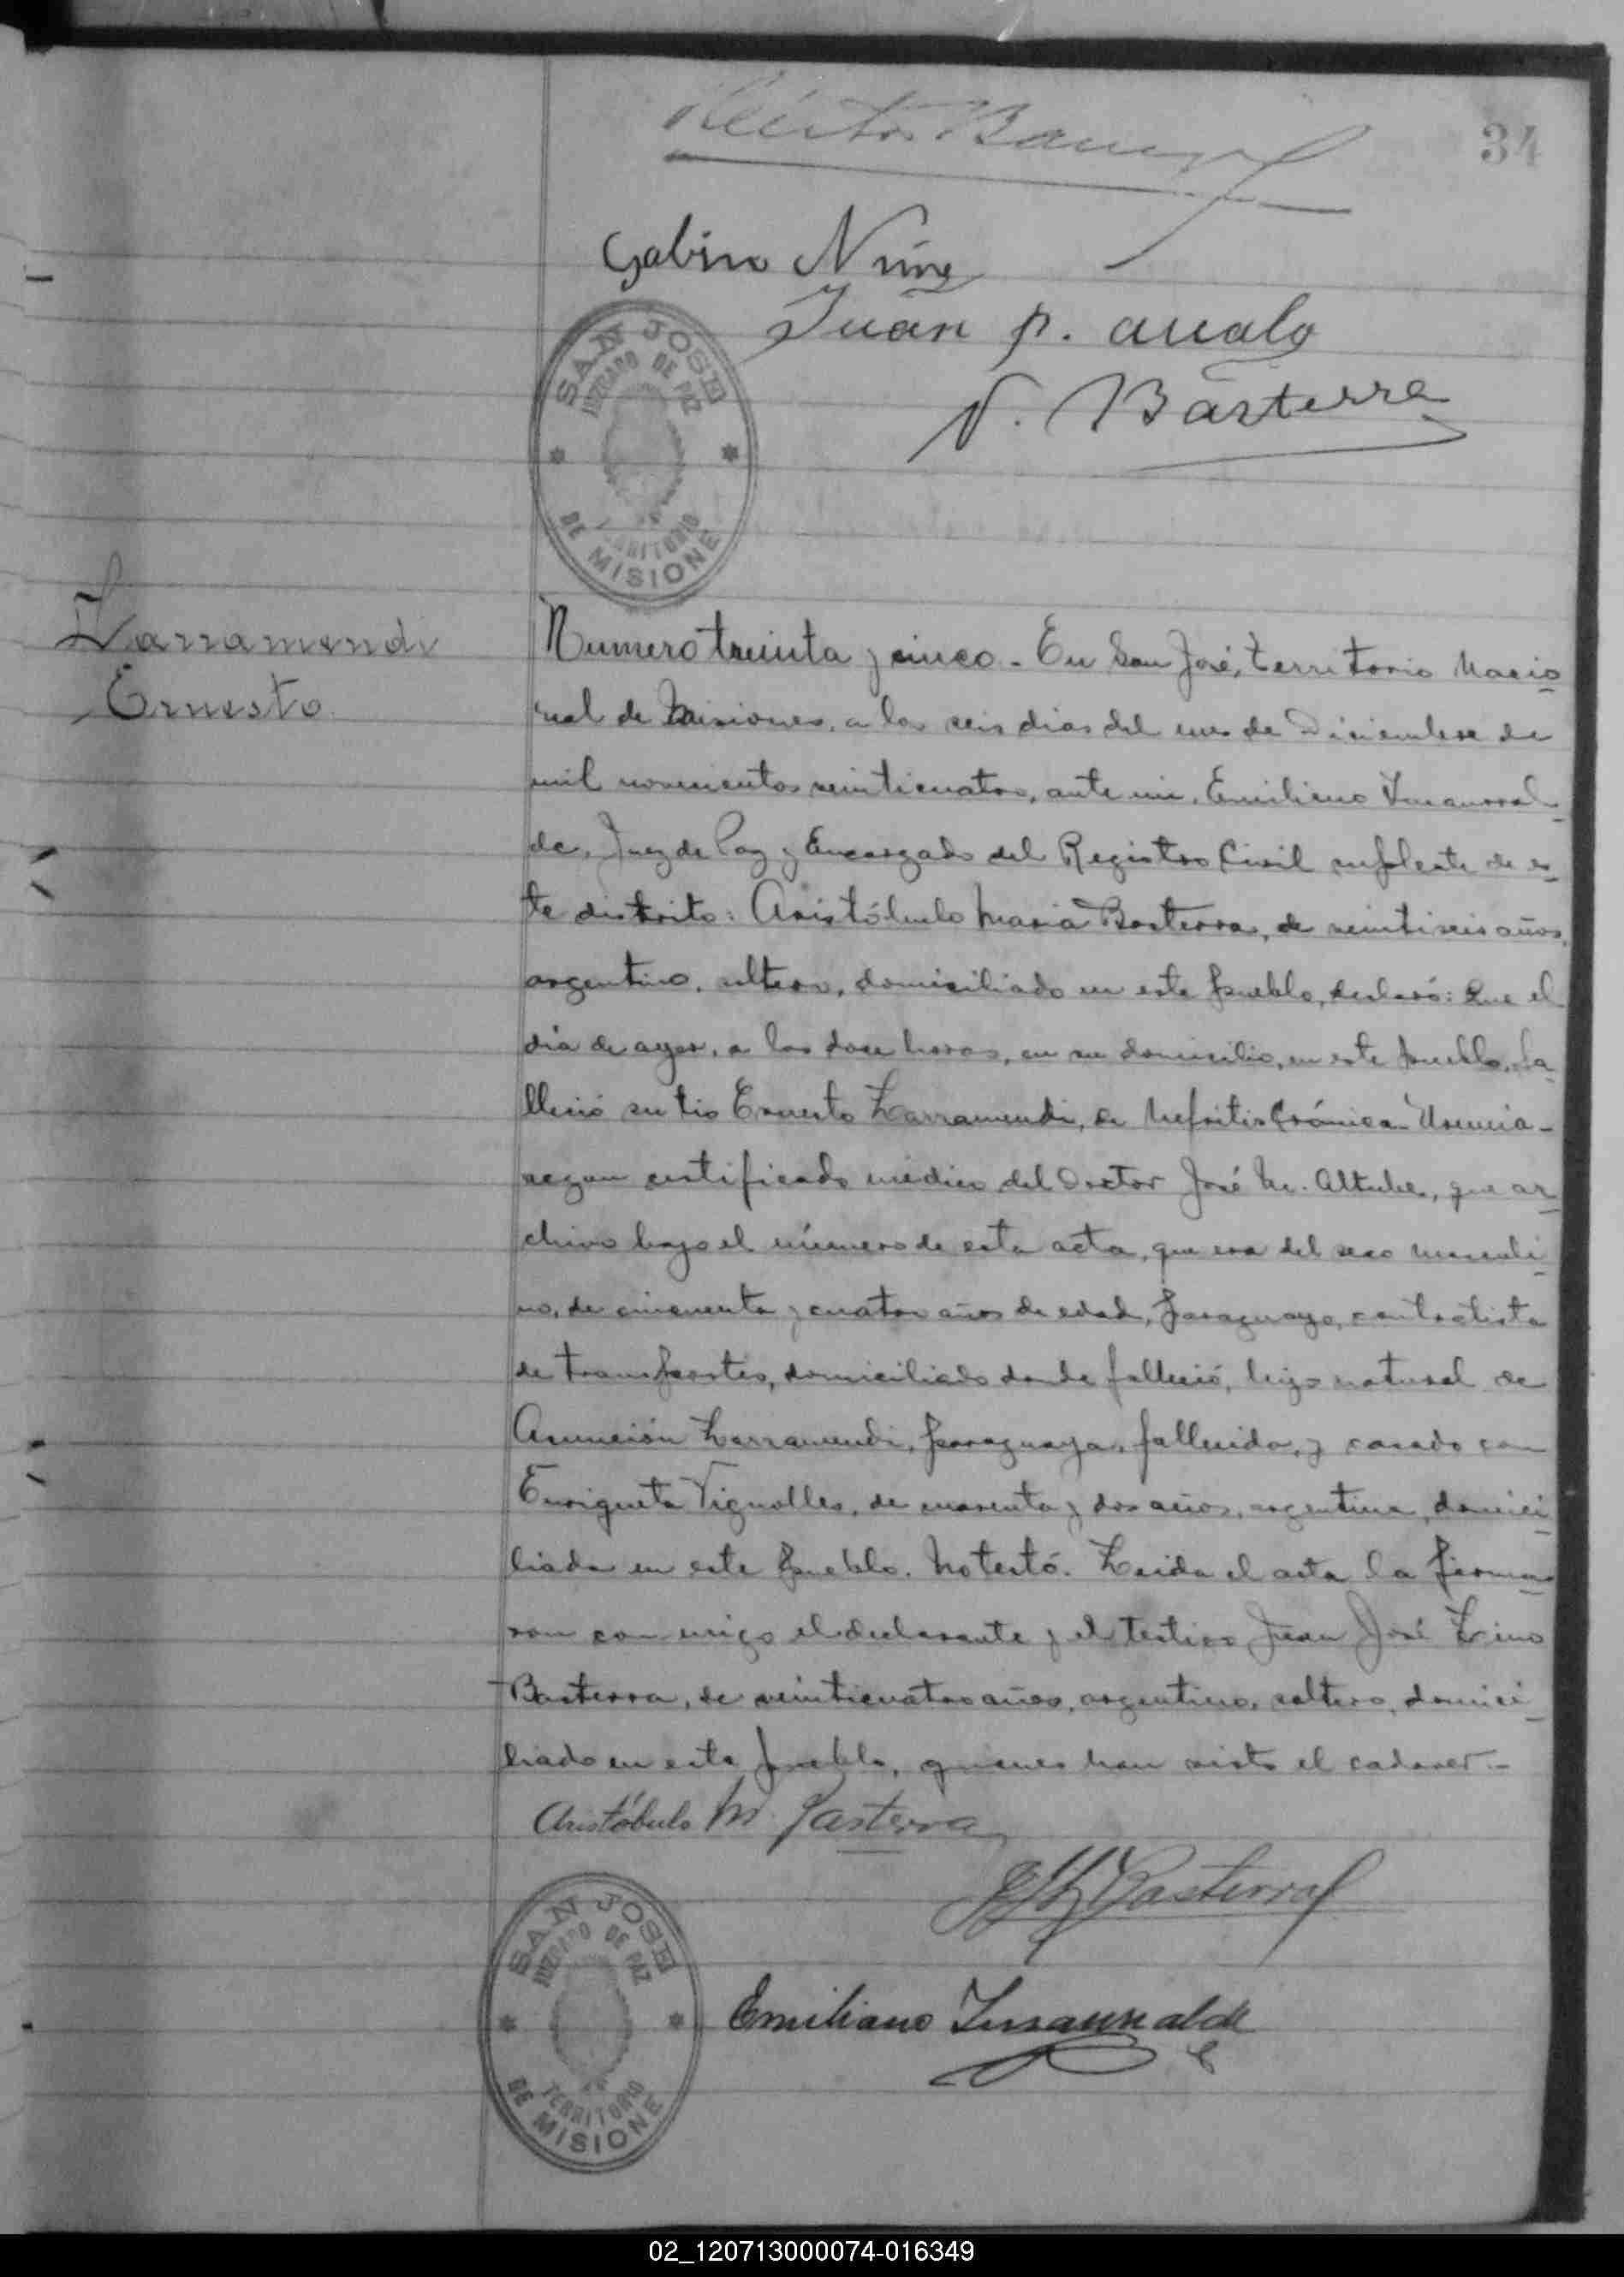 34
Gabino Núñez
Juan P. Arevalo
N. Basterra
SAN JOSE
JUZGADO DE PAZ
TERRITORIO
DE MISIONE
Larramendi
Ernesto
Numero treinta y cinco - En San José, territorio Nacio
nal de Misiones, a los seis dias del mes de Diciembre de
mil novecientos veinticuatro, ante mi, Emiliano Insaurral-
de, Juez de Paz y Encargado del Registro Civil suplente de es-
te distrito: Aristóbulo Maria Basterra, de veintiseis años,
argentino, soltero, domiciliado en este pueblo, declaró: Que el
dia de ayer, a las doce horas, en su domicilio, en este pueblo, fa-
lleció su tio Ernesto Larramendi, de Nefritis Crónica - Uremia -
segun certificado médico del Doctor José M. Altube, que ar
chivo bajo el número de esta acta, que era del sexo masculi
no, de cincuenta y cuatro años de edad, paraguayo, contratista
de transportes, domiciliado donde falleció, hijo natural de
Asunción Larramendi, paraguaya, fallecida, y casado con
Enriqueta Vignolles, de cuarenta y dos años, argentina, domici
liada en este pueblo. No testó. Leida el acta la firma
ron conmigo el declarante y el testigo Juan José Lino
Basterra, de veinticuatro años, argentino, soltero, domici
liado en este pueblo, quienes han visto el cadaver.-
Aristóbulo M. Basterra
Basterra
SAN JOSE
JUZGADO DE PAZ
TERRITORIO
DE MISIONE
Emiliano Insaurralde
02_120713000074-016349